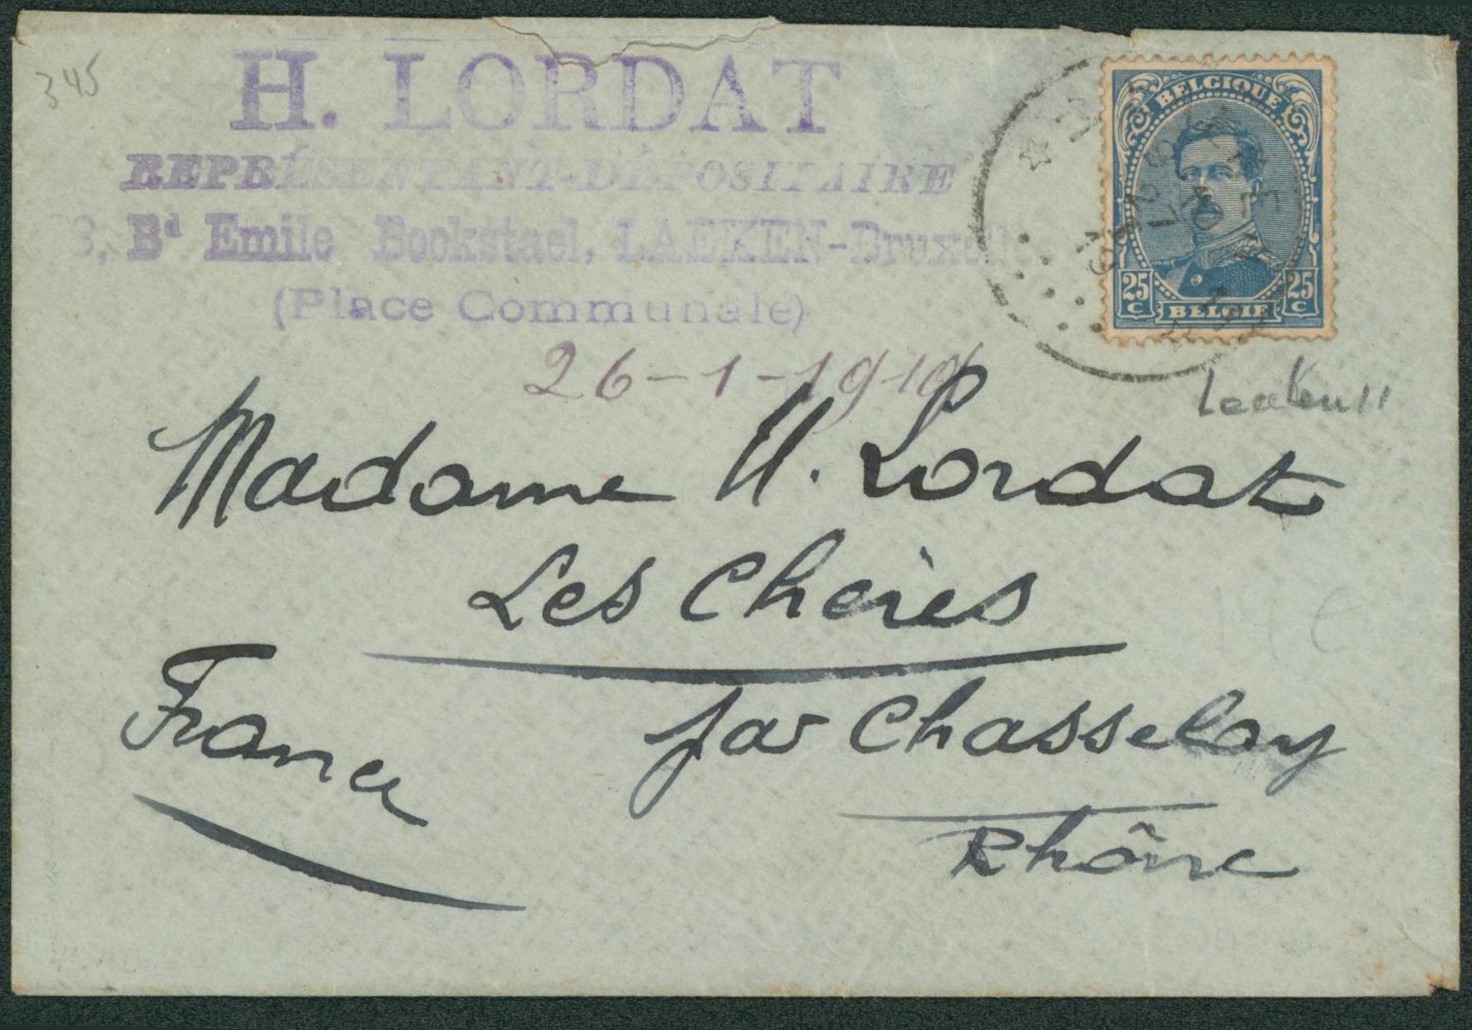 345
H. LORDAT
REPRÉSENTANT-DÉPOSITAIRE
3, Bd Emile Bockstael, LAEKEN-Bruxelles
(Place Communale)
26-1-1919
BELGIQUE
25 C
25 C
BELGIË
Madame H. Lordat
Les Chères
France
par Chasselay
Rhône